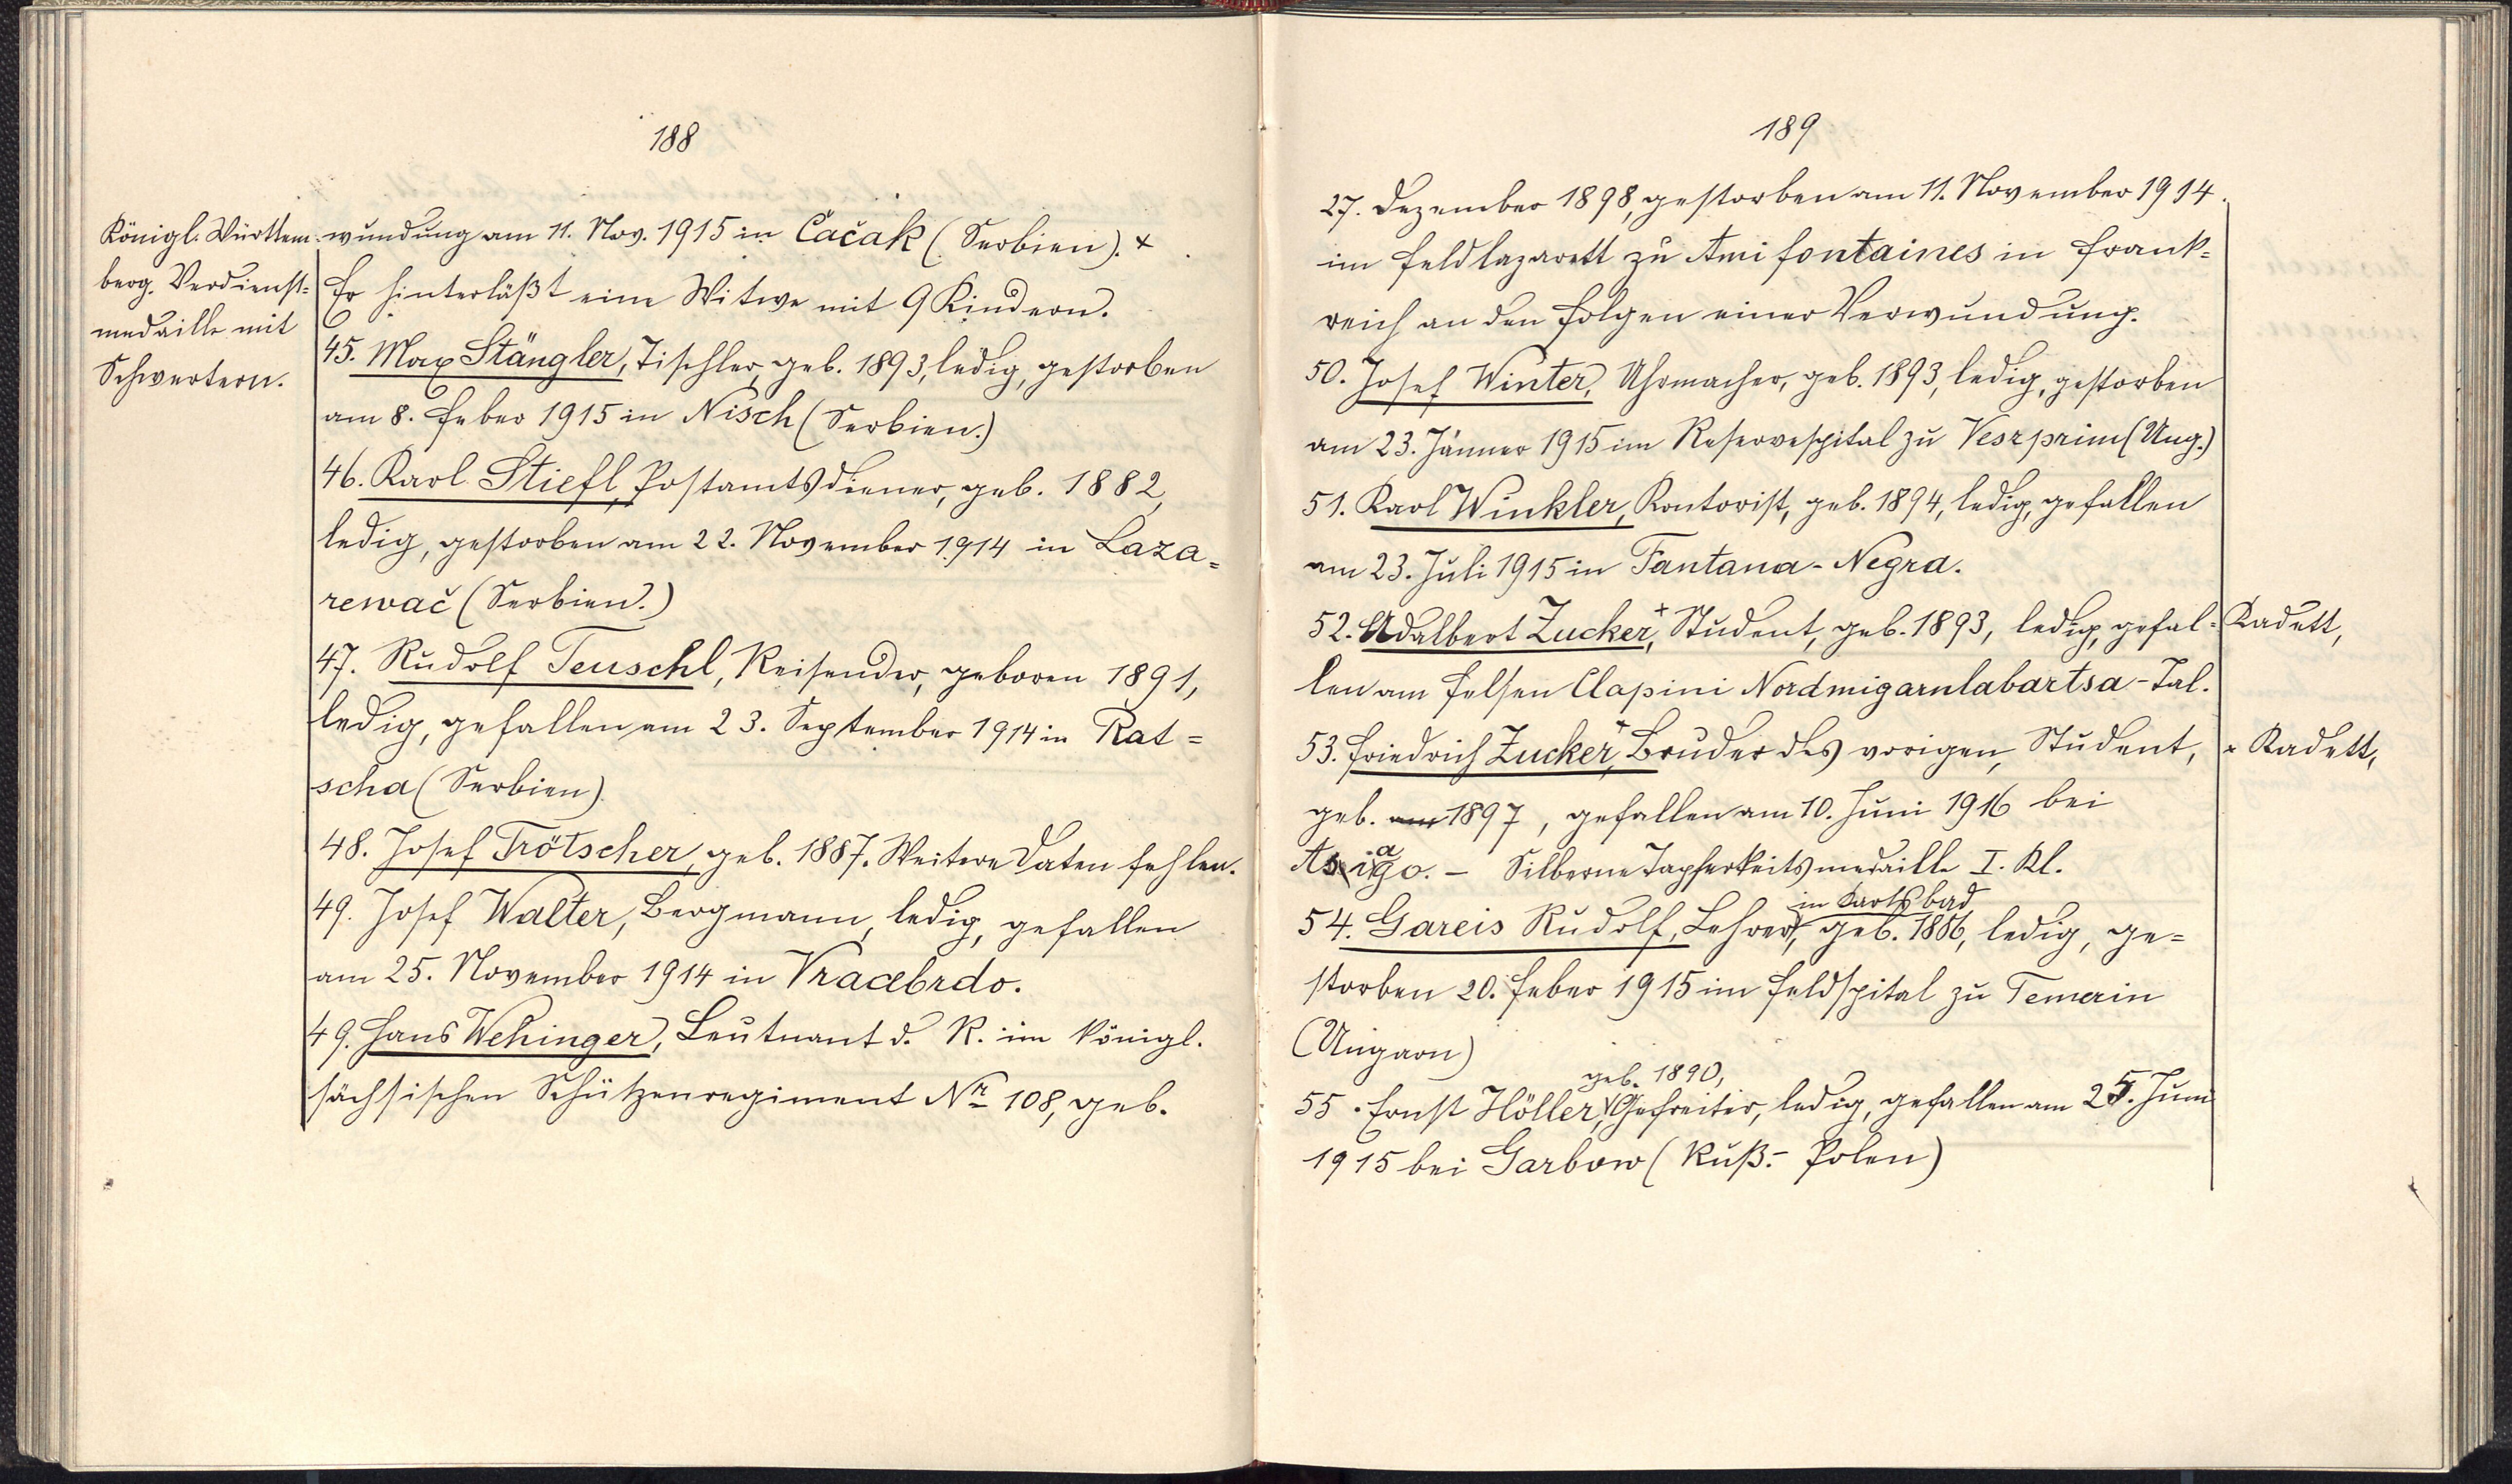 188
Königl. Württem-
berg. Verdienst-
medaille mit
Schwertern.
wundung am 11. Nov. 1915 in Čačak (Serbien). x
Er hinterläßt eine Witwe mit 9 Kindern.
45. Max Stängler, Tischler, geb. 1893, ledig, gestorben
am 8. Feber 1915 in Nisch (Serbien.)
46. Karl Stiefl, Postamtsdiener, geb. 1882,
ledig, gestorben am 22. November 1914 in Laza=
rewač (Serbien.)
47. Rudolf Teuschl, Reisender, geboren 1891,
ledig, gefallen am 23. September 1914 in Rat=
scha (Serbien)
48. Josef Trötscher, geb. 1887. Weitere Daten fehlen.
49. Josef Walter, Bergmann, ledig, gefallen
am 25. November 1914 in Vracebrdo.
49. Hans Wehinger, Leutnant d. R. im königl.
sächsischen Schützenregiment Nr 108, geb.
189
27. Dezember 1898, gestorben am 11. November 1914
im Feldlazarett zu Amifontaines in Frank=
reich an den Folgen einer Verwundung.
50. Josef Winter, Uhrmacher, geb. 1893, ledig, gestorben
am 23. Jänner 1915 im Reservespital zu Veszprim (Ung.)
51. Karl Winkler, Kontorist, geb. 1894, ledig, gefallen
am 23. Juli 1915 in Fantana-Negra.
52. Adalbert Zucker,+ Student, geb. 1893, ledig, gefal= Kadett,
len am Felsen Clapini Nordmigarnlabartsa-Tal.
53. Friedrich Zucker,+ Bruder des vorigen, Student, + Kadett,
geb. am 1897, gefallen am 10. Juni 1916 bei
Asiago. - Silberne Tapferkeitsmedaille I. Kl.
in Karlsbad
54. Gareis Rudolf, Lehrer, geb. 1886, ledig, ge=
storben 20. Feber 1915 im Feldspital zu Temerin
(Ungarn)
geb. 1890,
55. Ernst Höller, Gefreiter, ledig, gefallen am 25. Juni
1915 bei Garbow (Ruß.- Polen)